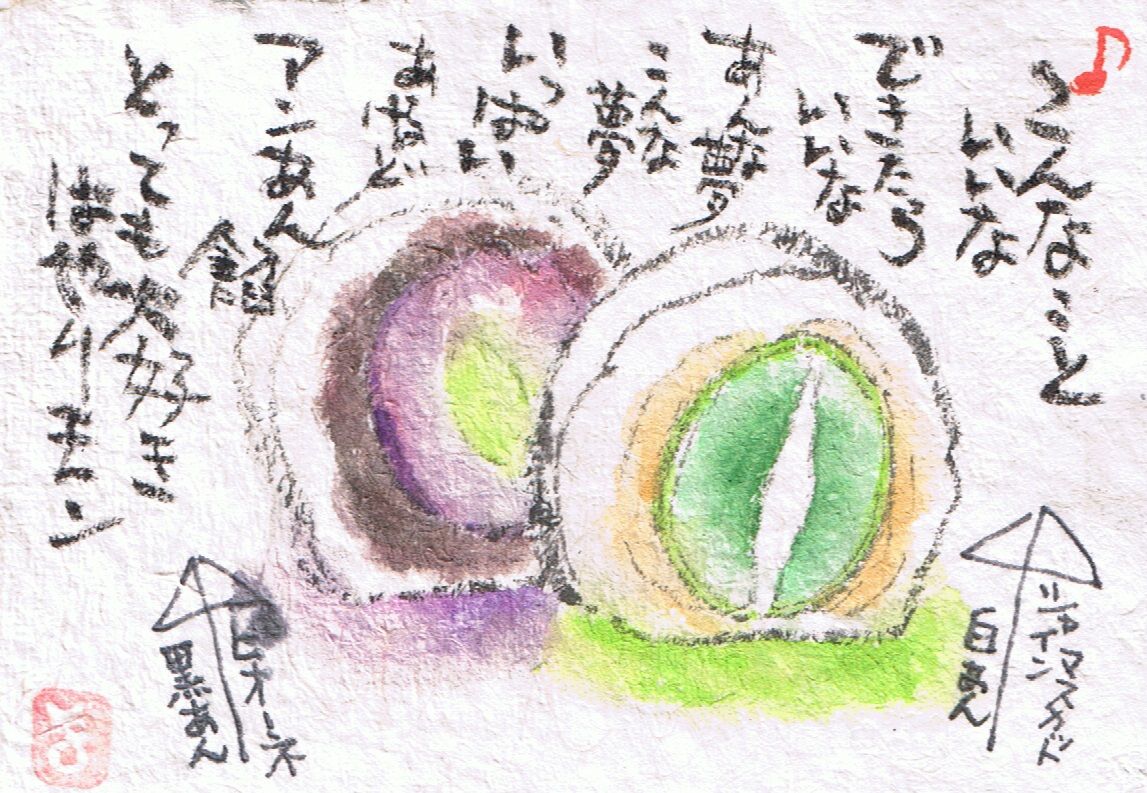 ♪こんなこと
いいな
できたら
いいな
あんな夢
こんな夢
いっぱい
あるけど
アンあん
餡
とっても大好き
はやりーモン
シャインマスカット
白あん
ピオーネ
黒あん